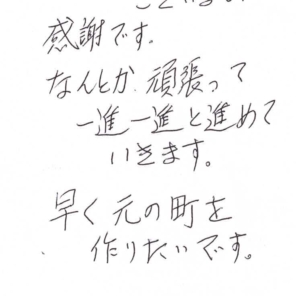 感謝です。
なんとか、頑張って
一進一進と進めて
いきます。
早く元の町を
作りたいです。